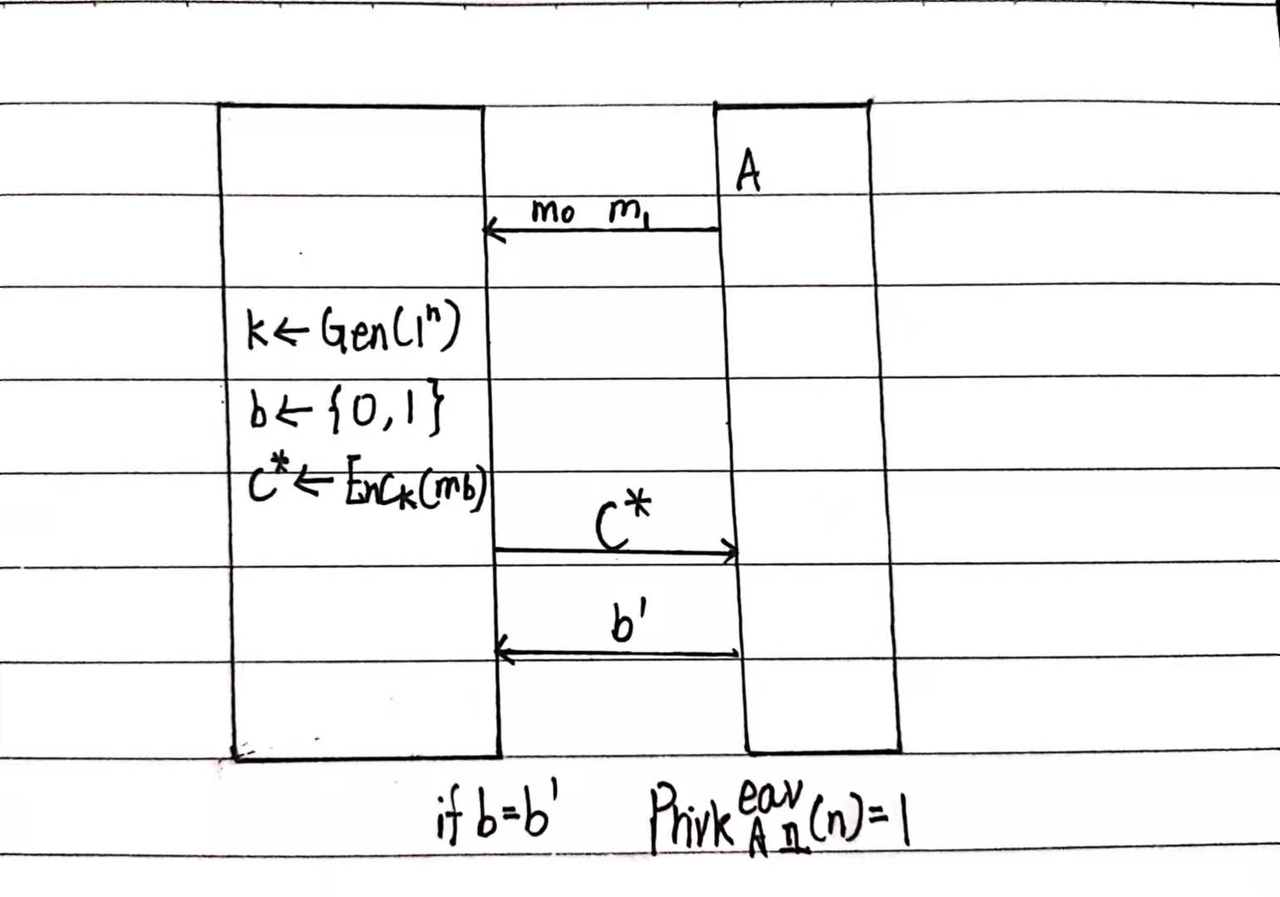 A
m₀ m₁
k←Gen(1ⁿ)
b←{0,1}
C*←Enck(mb)
C*
b'
if b=b' Privk eav A π (n)=1